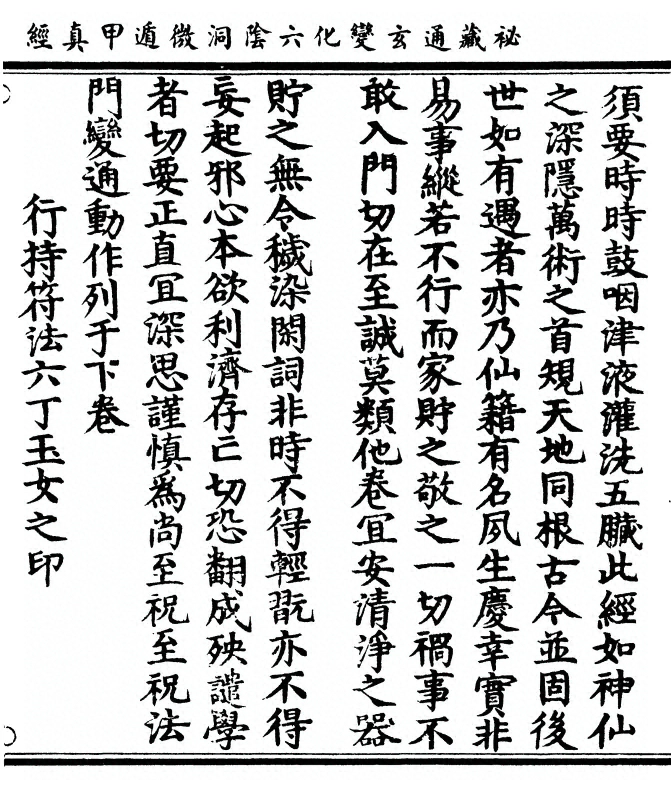 祕藏通玄變化六陰洞微遁甲真經
須要時時鼓咽津液灌洗五臟此經如神仙
之深隱萬術之首規天地同根古今並固後
世如有遇者亦乃仙籍有名夙生慶幸實非
易事縱若不行而家貯之敬之一切禍事不
敢入門切在至誠莫類他卷冝安清淨之器
貯之無令穢染閑詞非時不得輕翫亦不得
妄起邪心本欲利濟存亡切恐翻成殃譴學
者切要正直冝深思謹慎為尚至祝至祝法
門變通動作列于下卷
行持符法六丁玉女之印